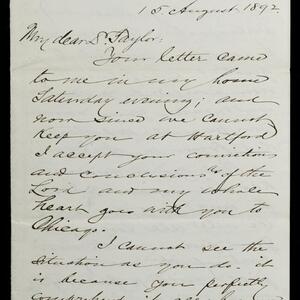 15 August 1892.
My dear Dr. Taylor:
Your letter came
to me in my home
Saturday evening; and
now since we cannot
keep you at Hartford
I accept your convictions
and conclusions as of the
Lord and my whole
heart goes with you to
Chicago.
I cannot see the
situation as you do. it
is because you perfectly
comprehend it